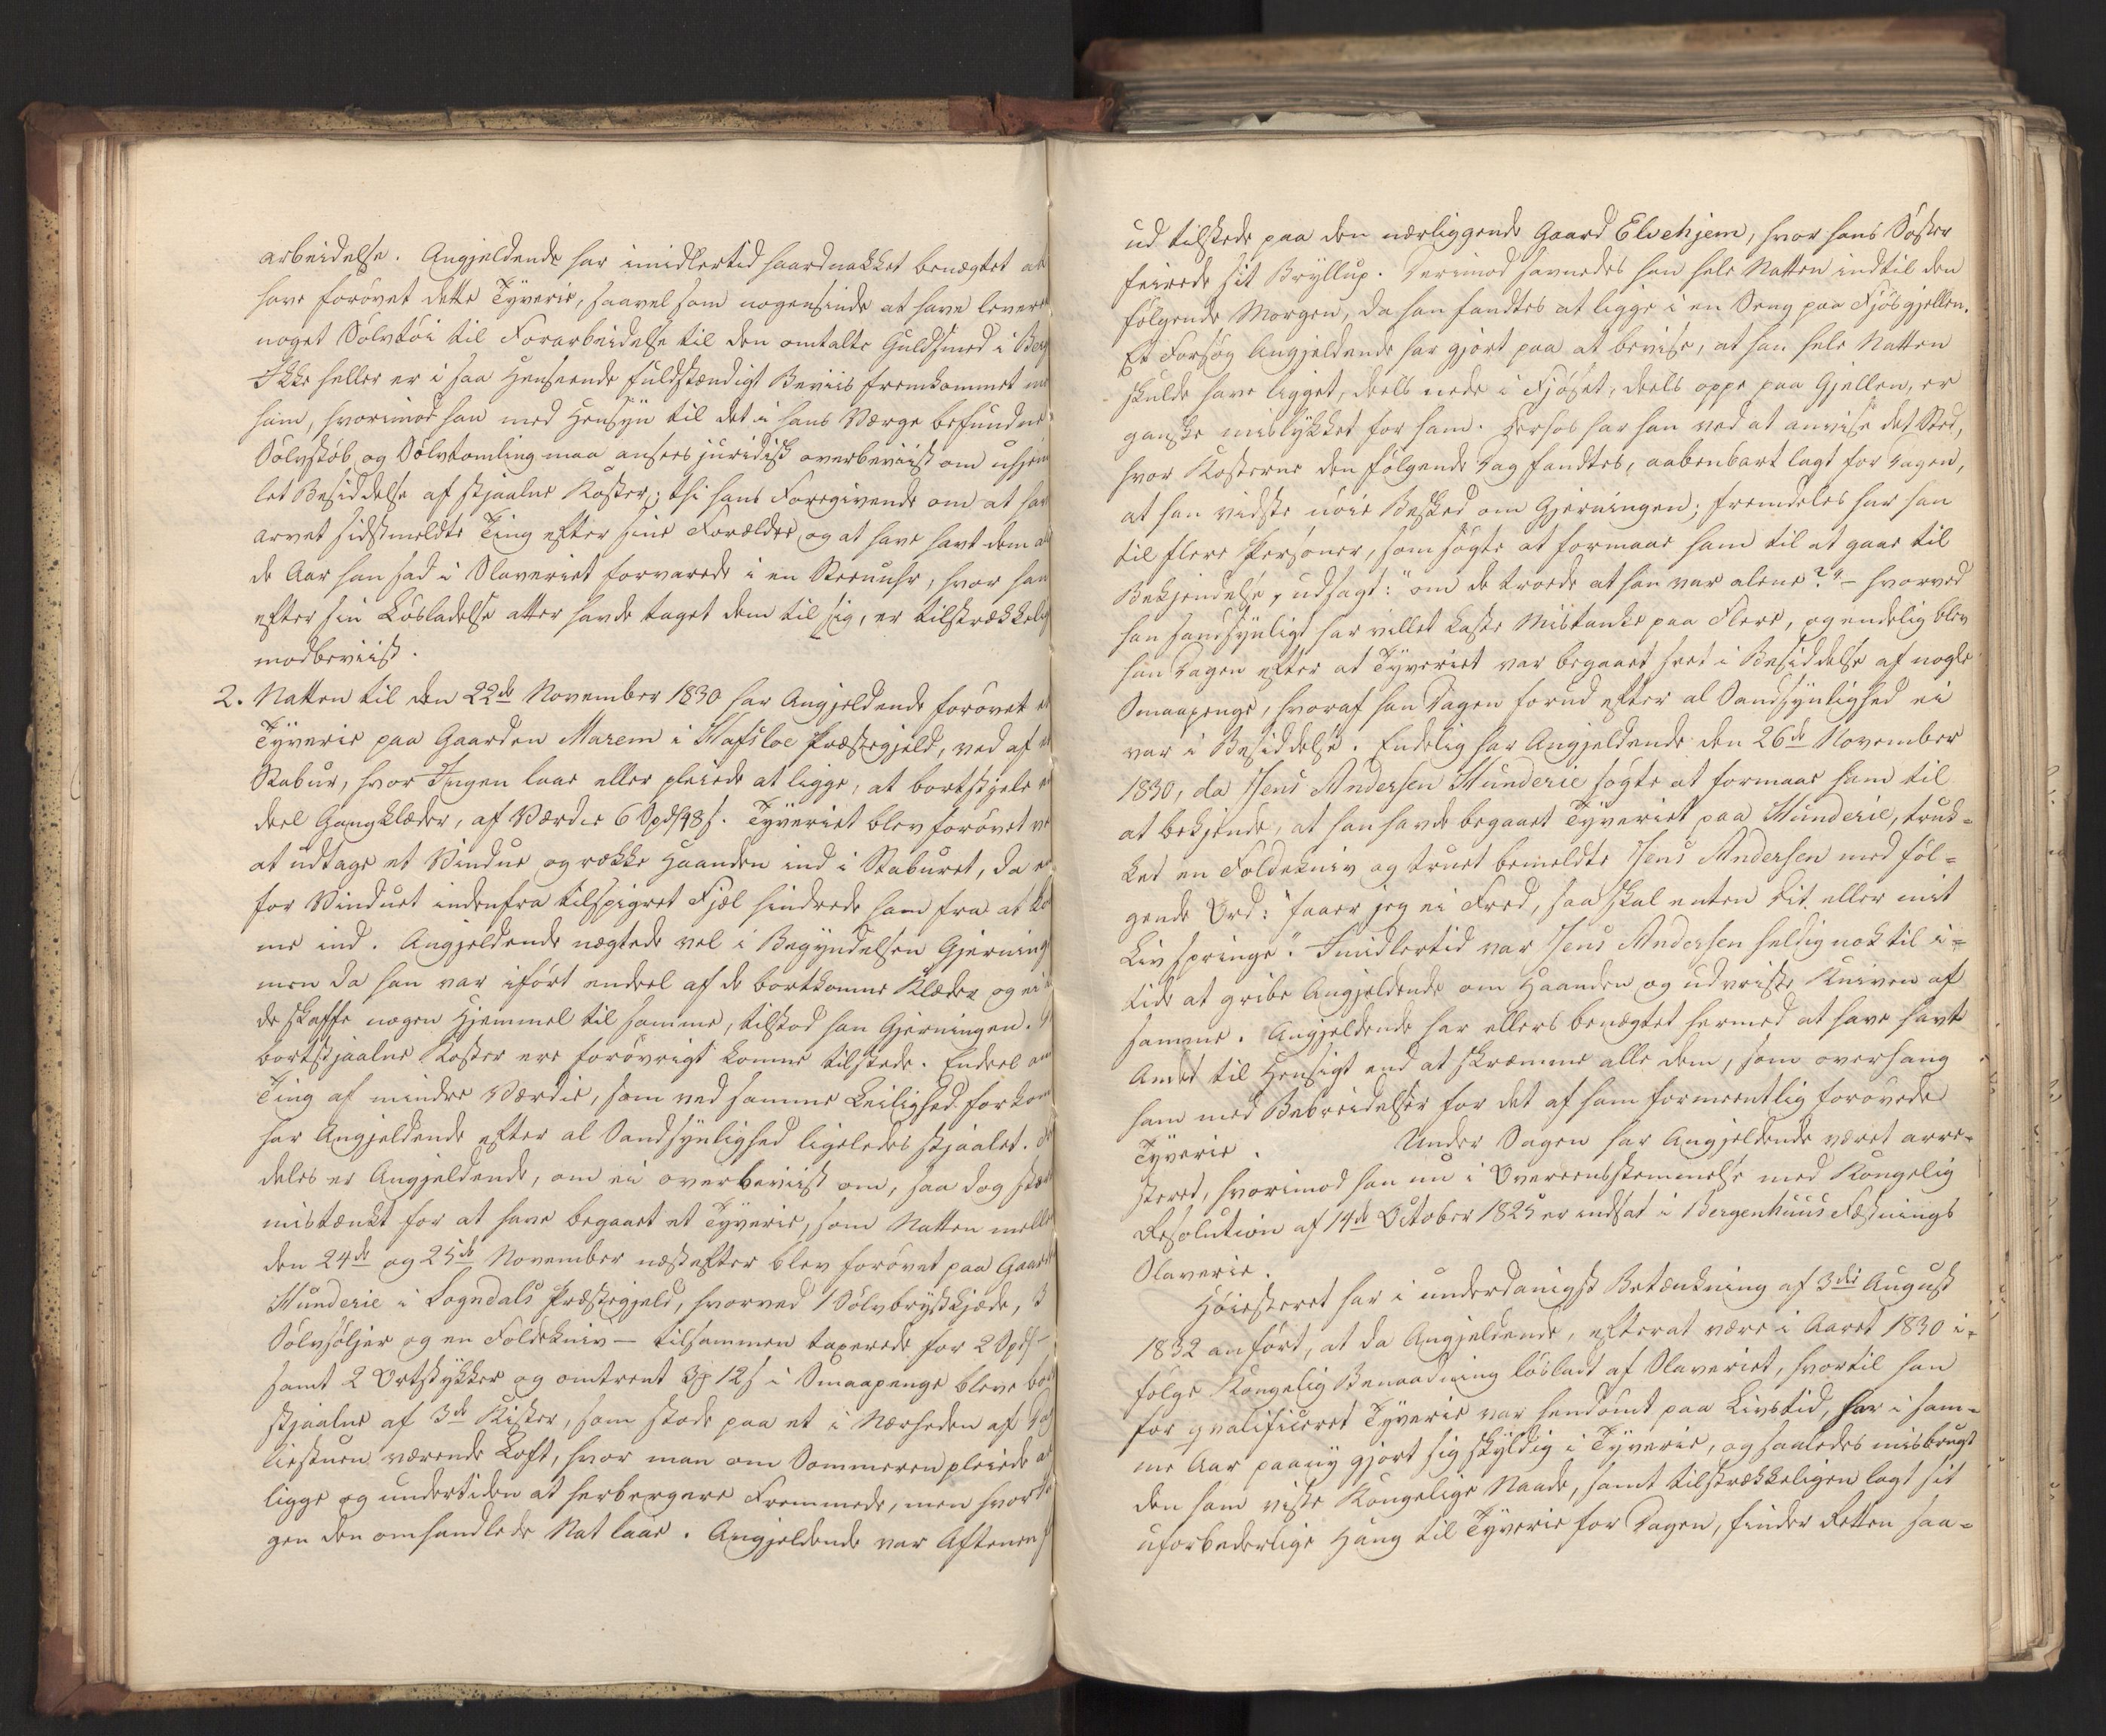 arbeidelse. Angjeldende har imidlertid haardnakket benægtet at
have forøvet dette Tyverie, saavel som nogensinde at have levere
noget Sølvtøi til Forarbeidelse til den omtalte Guldsmed i Berg
Ikke heller er i saa Henseende fuldstændigt Beviis fremkommet
ham, hvorimod han med Hensyn til det i hans Værge befundne
Sølvskøb og Sølvtomling maa ansees juridisk overbeviist om uhjem
let Besiddelse af stjaalne Koster; thi hans Foregivende om at hav
arvet sidstmeldte Ting efter sine Forældre og at have havt dem
de Aar han sad i Slaveriet forvarede i en Steenuhr, hvor han
efter sin Løsladelse atter havde taget dem til sig, er tilstrækkelig
modbeviist.
2. Natten til den 22de November 1830 har Angjeldende forøvet
Tyverie paa Gaarden Marem i Hafsloe Præstegjeld, ved af
Stabur, hvor Ingen laae eller pleiede at ligge, at bortstjele
deel Gangklæder, af Værdie 6 Spd 48 s. Tyveriet blev forøvet ve
at udtage et Vindue og række Haanden ind i Staburet, da
for Vinduet indenfra tilspigret Fjæl hindrede ham fra at ko
me ind. Angjeldende nægtede vel i Begyndelsen Gjerning
men da han var iført endeel af de bortkomne Klæder og ei
de skaffe nogen Hjemmel til samme, tilstod han Gjerningen.
bortstjaalne Koster ere forøvrigt komne tilstede. Endeel an
Ting af mindre Værdie, som ved samme Leilighed forkom
har Angjeldende efter al Sandsynlighed ligeledes stjaalet.
deles er Angjeldende, om ei overbeviist om, saa dog stær
mistænkt for at have begaaet et Tyverie, som Natten melle
den 24de og 25de November næstefter blev forøvet paa Gaard
Stunderie i Sogndals Præstegjeld, hvorved 1 Sølvbrystkjæde, 3
Sølvsøljer og en Foldekniv – tilsammen taxerede for 2 Spd –
samt 2 Ortstykker og omtrent 3 12 s i Smaapenge bleve bor
stjaalne af 3de Kister, som stode paa et i Nærheden af Dag
ligstuen værende Loft, hvor man om Sommeren pleiede a
ligge og undertiden at herbergere Fremmede, men hvor
gen den omhandlede Nat laae. Angjeldende var Aftenen
ud tilstede paa den nærliggende Gaard Elvehjem, hvor hans Søster
feirede sit Bryllup. Derimod savnedes han hele Natten indtil den
følgende Morgen, da han fandtes at ligge i en Seng paa Fjøsgjellen.
Et Forsøg Angjeldende har gjort paa at bevise, at han hele Natten
skulde have ligget, deels nede i Fjøset, deels oppe paa Gjellen, er
ganske mislykket for ham. Herhos har han ved at anvise det Sted,
hvor Kosterne den følgende Dag fandtes, aabenbart lagt for Dagen,
at han vidste nøie Besked om Gjerningen; fremdeles har han
til flere Personer, som søgte at formaae ham til at gaae til
Bekjendelse, udsagt: "om de troede at han var alene?" – hvorved
han sandsynligt har villet kaste Mistanke paa Flere, og endelig blev
han Dagen efter at Tyveriet var begaaet seet i Besiddelse af nogle
Smaapenge, hvoraf han Dagen forud efter al Sandsynlighed ei
var i Besiddelse. Endelig har Angjeldende den 26de November
1830, da Jens Andersen Stunderie søgte at formaae ham til
at bekjende, at han havde begaaet Tyveriet paa Stunderie, truk=
ket en Foldekniv og truet bemeldte Jens Andersen med føl=
gende Ord: "faaer jeg ei Fred, saa skal enten dit eller mit
Liv springe." Imidlertid var Jens Andersen heldig nok til i=
tide at gribe Angjeldende om Haanden og udvriste Kniven af
samme. Angjeldende har ellers benægtet hermed at have havt
Andet til Hensigt end at skræmme alle dem, som overhang
ham med Bebreidelser for det af ham formeentlig forøvede
Tyverie. Under Sagen har Angjeldende været arre=
steret, hvorimod han nu i Overeensstemmelse med Kongelig
Resolution af 14de October 1825 er indsat i Bergenhuus Fæstnings
Slaverie.
Høiesteret har i underdanigst Betænkning af 3die August
1832 anført, at da Angjeldende, efterat være i Aaret 1830 i=
følge Kongelig Benaadning løsladt af Slaveriet, hvortil han
for qvalificeret Tyverie var hendømt paa Livstid, har i sam=
me Aar paany gjort sig skyldig i Tyverie, og saaledes misbrugt
den ham viste Kongelige Naade, samt tilstrækkeligen lagt sit
uforbederlige Hang til Tyverie for Dagen, finder Retten saa=